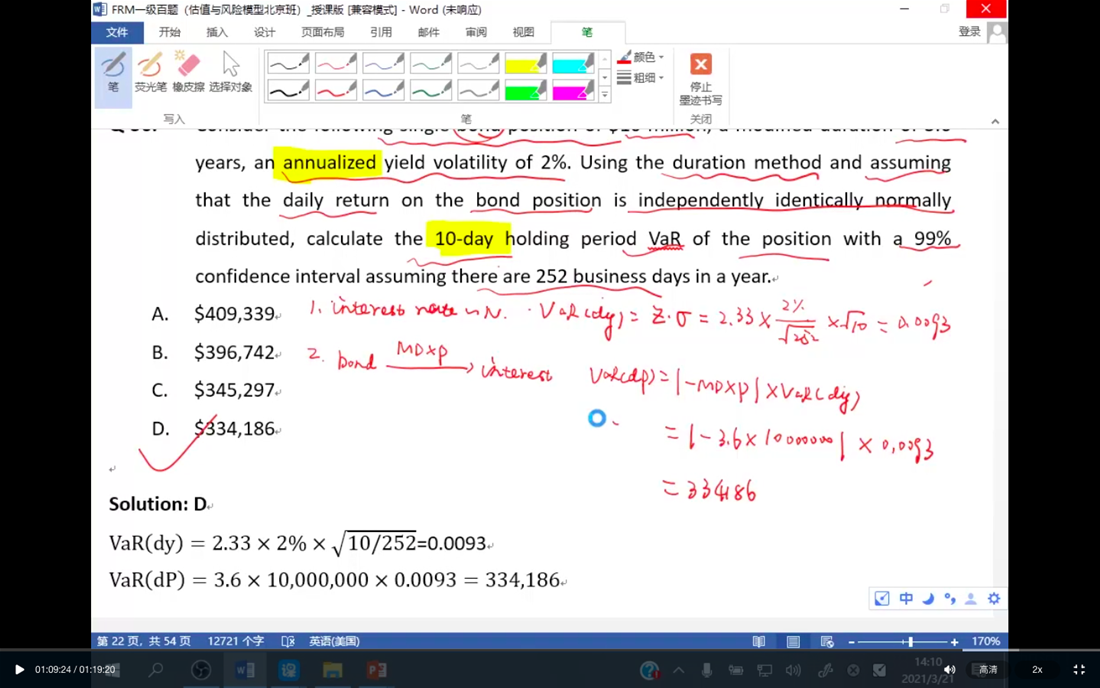 FRM一级百题（估值与风险模型北京班）_授课版 [兼容模式] - Word (未响应)
文件 开始 插入 设计 页面布局 引用 邮件 审阅 视图 笔 登录
笔 荧光笔 橡皮擦 选择对象 颜色 粗细 停止墨迹书写
写入 笔 关闭
years, an annualized yield volatility of 2%. Using the duration method and assuming
that the daily return on the bond position is independently identically normally
distributed, calculate the 10-day holding period VaR of the position with a 99%
confidence interval assuming there are 252 business days in a year.
A. $409,339
1. interest rate ~ N. VaR(dy) = Z·σ = 2.33 × 2%/√252 × √10 = 0.0093
B. $396,742
2. bond MD×P interest VaR(dp) = |-MD×P| × VaR(dy)
C. $345,297
D. $334,186
= |-3.6×10000000| × 0.0093
= 334186
Solution: D
VaR(dy) = 2.33 × 2% × √10/252=0.0093
VaR(dP) = 3.6 × 10,000,000 × 0.0093 = 334,186
中
第 22 页，共 54 页 12721 个字 英语(美国) 170%
01:09:24 / 01:19:20 14:10 高清 2x
2021/3/21